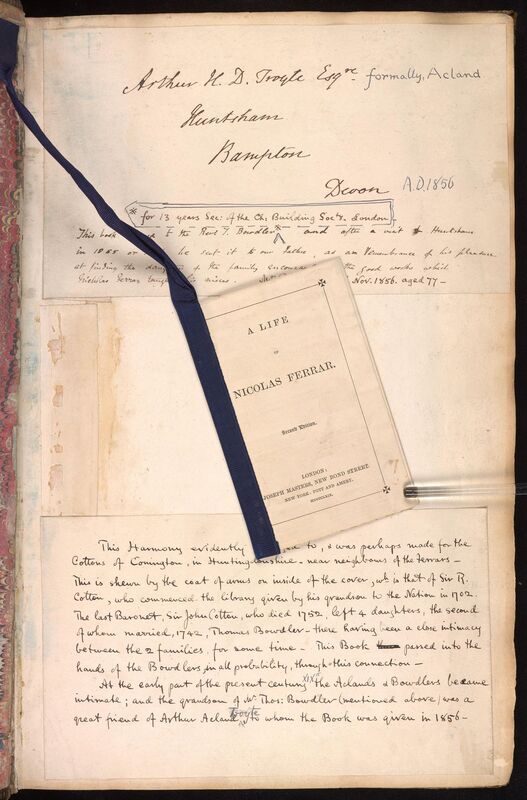 Arthur H. D. Troyte Esqre formally, Acland
Huntsham
Bampton
Devon A.D. 1856
* for 13 years Sec: of the Ch: Building Socy. London.
This book to the Revd T. Bowdler * and after a visit to Huntsham
in 1855 or he sent it to our Father, as an Remembrance of his pleasure
at finding the daughters of the family the good works which
Nicholas Ferrar taught his nieces. Nov. 1856. aged 77 —
A LIFE
OF
NICOLAS FERRAR.
Second Edition.
LONDON:
JOSEPH MASTERS, NEW BOND STREET.
NEW YORK: POTT AND AMERY.
MDCCCLXIX.
This Harmony evidently to, & was perhaps made for the
Cottons of Conington, in Huntingdonshire — near neighbours of the Ferrars —
This is shewn by the coat of arms on inside of the cover, wh. is that of Sir R.
Cotton, who commenced the library given by his grandson to the Nation in 1702.
The last Baronet, Sir John Cotton, who died 1752, left 4 daughters, the second
of whom married, 1742, Thomas Bowdler — there having been a close intimacy
between the 2 families, for some time — This Book passed into the
hands of the Bowdlers, in all probability, through this connection —
At the early part of the present century XIXth The Aclands & Bowdlers became
intimate; and the grandson of Mr. Thos: Bowdler (mentioned above) was a
great friend of Arthur Acland Troyte to whom the Book was given in 1856 —